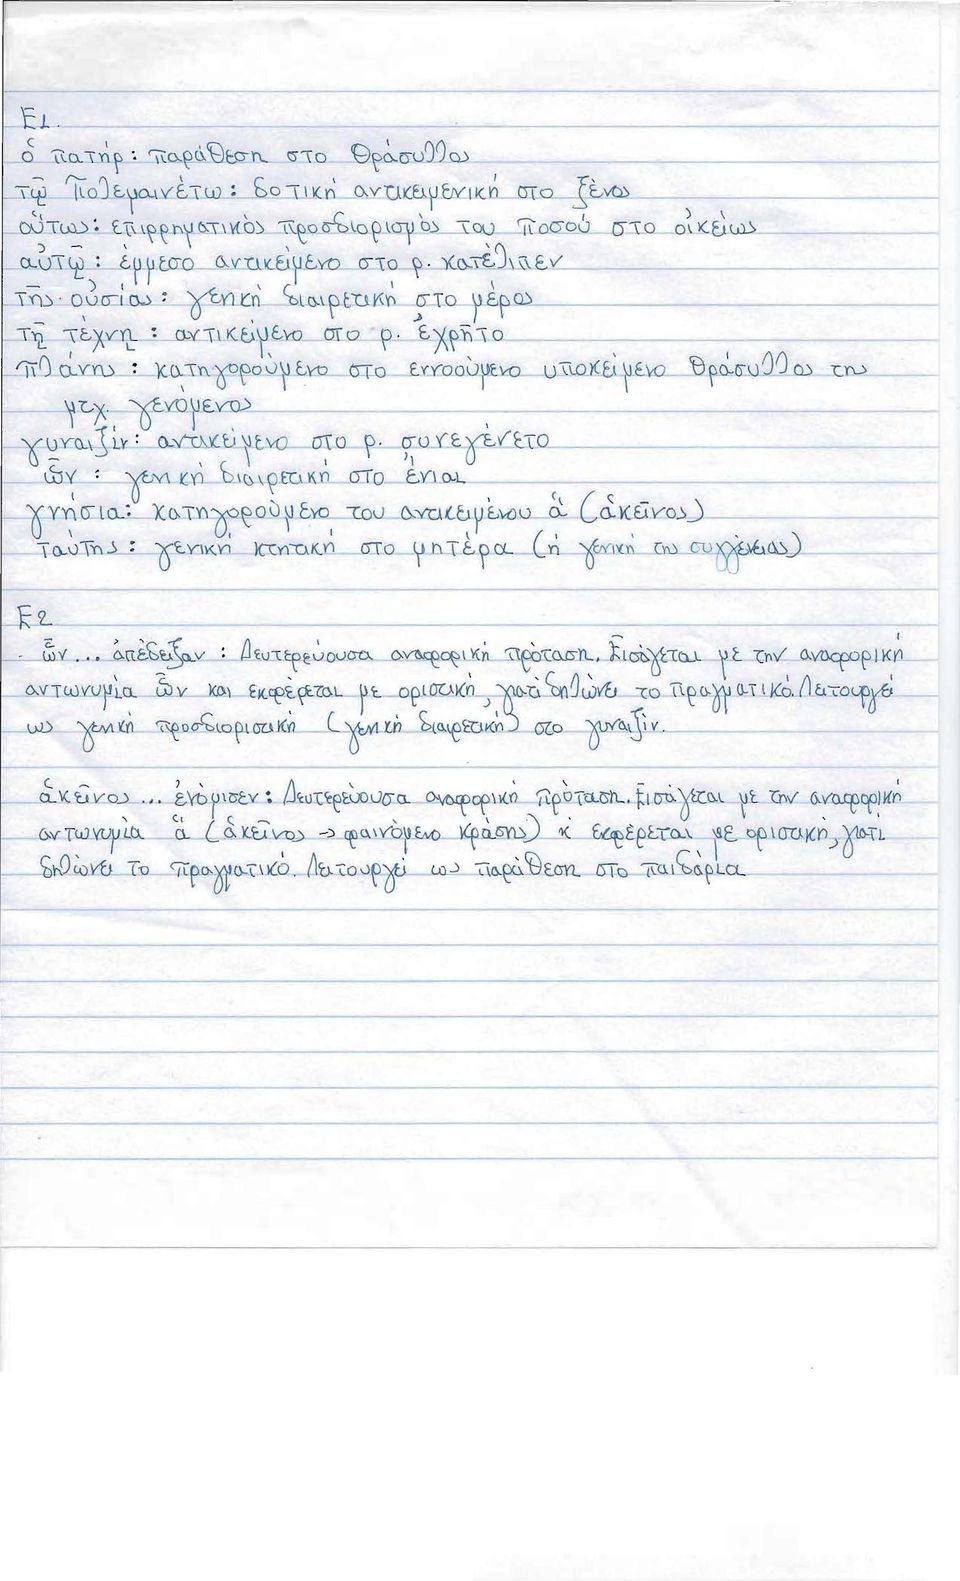 Ε1.
ὁ πατήρ : παράθεση στο Θράσυλλος
τῷ Πολεμαινέτῳ : δοτική αντικειμενική στο ξένος
οὕτως : επιρρηματικός προσδιορισμός του ποσού στο οἰκείως
αὐτῷ : έμμεσο αντικείμενο στο ρ. κατέλιπεν
τῆς οὐσίας : γενική διαιρετική στο μέρος
τῇ τέχνῃ : αντικείμενο στο ρ. ἐχρῆτο
πλάνης : κατηγορούμενο στο εννοούμενο υποκείμενο Θράσυλλος της
μτχ. γενόμενος
γυναιξίν : αντικείμενο στο ρ. συνεγένετο
ὧν : γενική διαιρετική στο ἔνιαι
γνήσια : κατηγορούμενο του αντικειμένου ἅ (ἁκεῖνος)
ταύτης : γενική κτητική στο μητέρα (ή γενική της συγγένειας)
Ε2
- ὧν ... ἀπέδειξαν : Δευτερεύουσα αναφορική πρόταση. Εισάγεται με την αναφορική
αντωνυμία ὧν και εκφέρεται με οριστική, γιατί δηλώνει το πραγματικό. Λειτουργεί
ως γενική προσδιοριστική (γενική διαιρετική) στο γυναιξίν.
ἁκεῖνος ... ἐνόμισεν : Δευτερεύουσα αναφορική πρόταση. Εισάγεται με την αναφορική
αντωνυμία ἅ (ἁκεῖνος → φαινόμενο κράσης) κ εκφέρεται με οριστική, γιατί
δηλώνει το πραγματικό. Λειτουργεί ως παράθεση στο παιδάρια